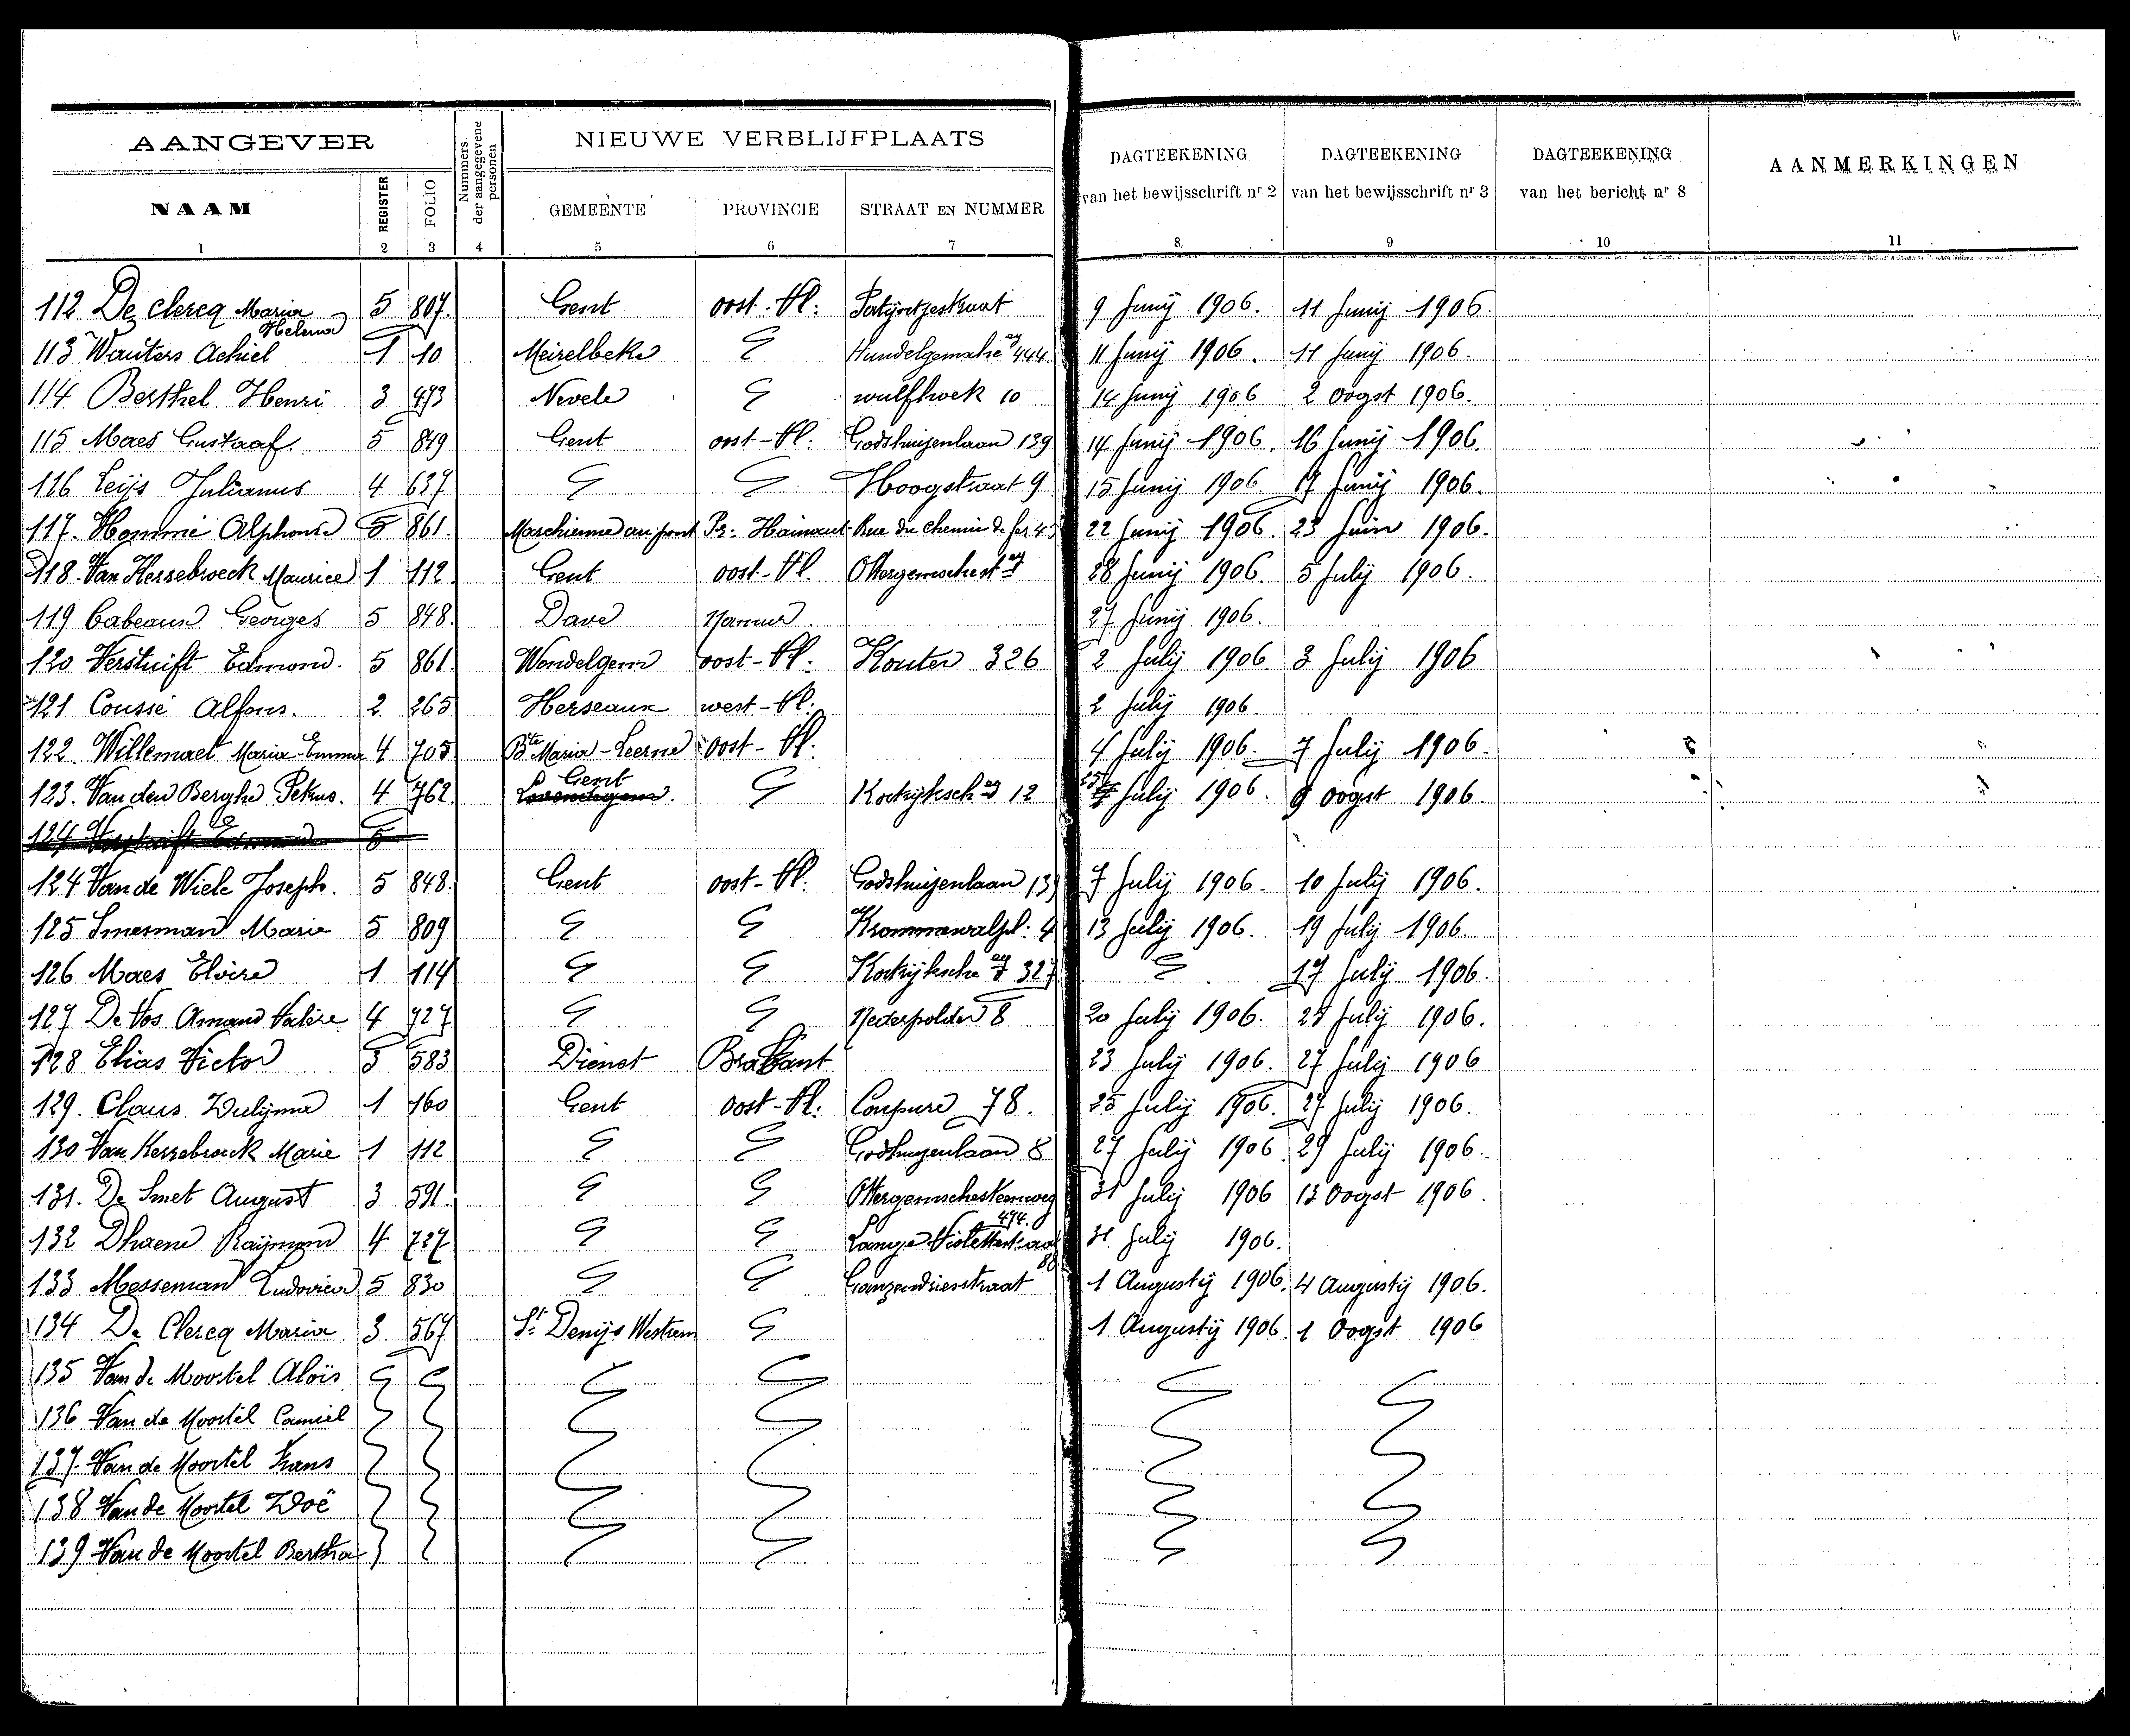 AANGEVER
Nummers der aangegevene personen
NIEUWE VERBLIJFPLAATS
DAGTEEKENING van het bewijsschrift nr 2
DAGTEEKENING van het bewijsschrift nr 3
DAGTEEKENING van het bericht nr 8
AANMERKINGEN
NAAM REGISTER FOLIO GEMEENTE PROVINCIE STRAAT EN NUMMER
1 2 3 4 5 6 7 8 9 10 11
112 De Clercq Maria Helena 5 807. Gent oost-Vl: 9 Junij 1906. 11 Junij 1906.
113 Wauters Achiel 1 10 Meirelbeke 444 11 Junij 1906. 11 Junij 1906.
114 Berthel Henri 3 473 Nevele wulfhoek 10 14 Junij 1906 2 Oogst 1906.
115 Maes Gustaaf 5 849 Gent oost-Vl: Godshuizenlaan 139 14 Junij 1906. 16 Junij 1906.
116 Leijs Julianus 4 637 Hoogstraat 9 15 Junij 1906. 17 Junij 1906.
117. Hommé Alphonse 5 861. Marchienne au pont Pr: Hainaut Rue du Chemin de fer 22 Junij 1906. 23 Juin 1906.
118. Van Kerrebroeck Maurice 1 112 Gent oost-Vl. 28 Junij 1906. 5 Julij 1906.
119 Cabeaux Georges 5 848. Dave Namur 27 Junij 1906.
120 Verstuift Edmond. 5 861. Wondelgem oost-Vl: Kouter 326 2 Julij 1906 3 Julij 1906
121 Coussé Alfons. 2 265 Herseaux west-Vl: 2 Julij 1906
122. Willemaet Maria-Emma 4 705 Maria-Leerne oost-Vl: 4 Julij 1906. 7 Julij 1906.
123. Van den Berghe Petrus. 4 762 Gent Kortrijksch 12 Julij 1906. 9 Oogst 1906.
124 5
124 Van de Wiele Joseph. 5 848. Gent oost-Vl: Godshuizenlaan 139 7 Julij 1906. 10 Julij 1906.
125 Smesman Marie 5 809 Krommewalpl: 4 13 Julij 1906. 19 Julij 1906.
126 Maes Elvire 1 114 Kortrijksche 327 17 Julij 1906.
127 De Vos Amand Valère 4 727 Nederpolder 8 20 Julij 1906. 25 Julij 1906.
128 Elias Victor 3 583 Dienst Brabant 23 Julij 1906. 27 Julij 1906
129. Claus Zulijma 1 160 Gent oost-Vl: Coupure 78. 25 Julij 1906. 27 Julij 1906.
130 Van Kerrebroeck Marie 1 112 Godshuizenlaan 8 27 Julij 1906 29 Julij 1906.
131. De Smet August 3 591. Ottergemschesteenweg 494. 31 Julij 1906 13 Oogst 1906.
132 Dhaene Raijmond 4 727 Lange Violettestraat 31 Julij 1906.
133 Messeman Ludovica 5 830 Ganzendriesstraat 1 Augustij 1906. 4 Augustij 1906.
134 De Clercq Maria 3 567 St Denijs Westrem 1 Augustij 1906. 1 Oogst 1906
135 Van de Moortel Aloïs
136 Van de Moortel Camiel
137. Van de Moortel Frans
138 Van de Moortel Zoë
139 Van de Moortel Bertha